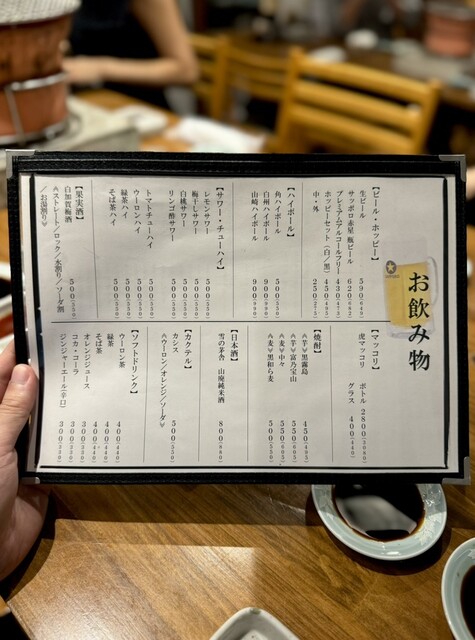 お飲み物
【ビール・ホッピー】
生ビール 500(550)
サッポロ赤星 瓶ビール 620(682)
プレミアムアルコールフリー 430(473)
ホッピーセット(白/黒) 450(495)
中・外 250(275)
【ハイボール】
角ハイボール 500(550)
白州ハイボール 900(990)
山崎ハイボール 900(990)
【サワー・チューハイ】
レモンサワー 500(550)
梅干しサワー 500(550)
白桃サワー 500(550)
リンゴ酢サワー 500(550)
トマトチューハイ 500(550)
ウーロンハイ 500(550)
緑茶ハイ 500(550)
そば茶ハイ 500(550)
【果実酒】
白加賀梅酒 500(550)
《ストレート/ロック/水割り/ソーダ割
/お湯割り》
【マッコリ】
虎マッコリ ボトル 2800(3080)
グラス 400(440)
【焼酎】
《芋》黒霧島 450(495)
《芋》富乃宝山 550(605)
《麦》中々 550(605)
《麦》黒和ら麦 500(550)
【日本酒】
雪の茅舎 山廃純米酒 800(880)
【カクテル】
カシス 500(550)
《ウーロン/オレンジ/ソーダ》
【ソフトドリンク】
ウーロン茶 400(440)
緑茶 400(440)
そば茶 400(440)
オレンジジュース 300(330)
コカ・コーラ 300(330)
ジンジャーエール(辛口) 300(330)